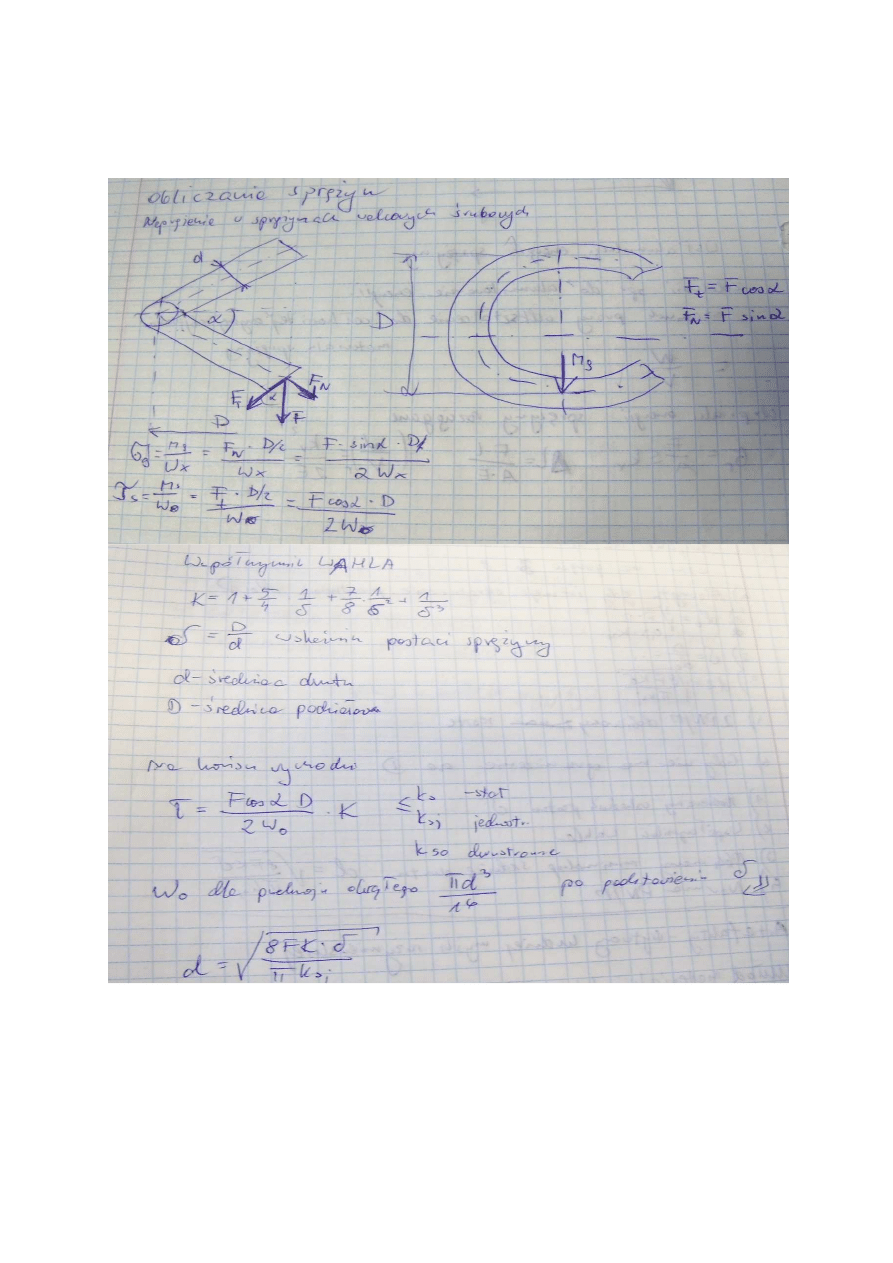 obliczanie sprężyn
Naprężenie w sprężynach walcowych śrubowych
d
α
F_t α F_N
F
D
D
M_g
F_t = F cosα
F_N = F sinα
σ_g = M_g/W_x = F_N · D/2 / W_x = F · sinα · D / 2 W_x
τ_s = M_s/W_o = F_t · D/2 / W_o = F cosα · D / 2 W_o
Współczynnik WAHLA
K = 1 + 5/4 · 1/δ + 7/8 · 1/δ² + 1/δ³
δ = D/d wskaźnik postaci sprężyny
d - średnica drutu
D - średnica podziałowa
Na końcu wychodzi
τ = F cosα D / 2 W_o · K ≤ k_s - stat
k_sj jednostr.
k_so dwustronne
W_o dla pełnego okrągłego πd³/16 po podstawieniu δ
d = √(8FK·δ / π k_sj)